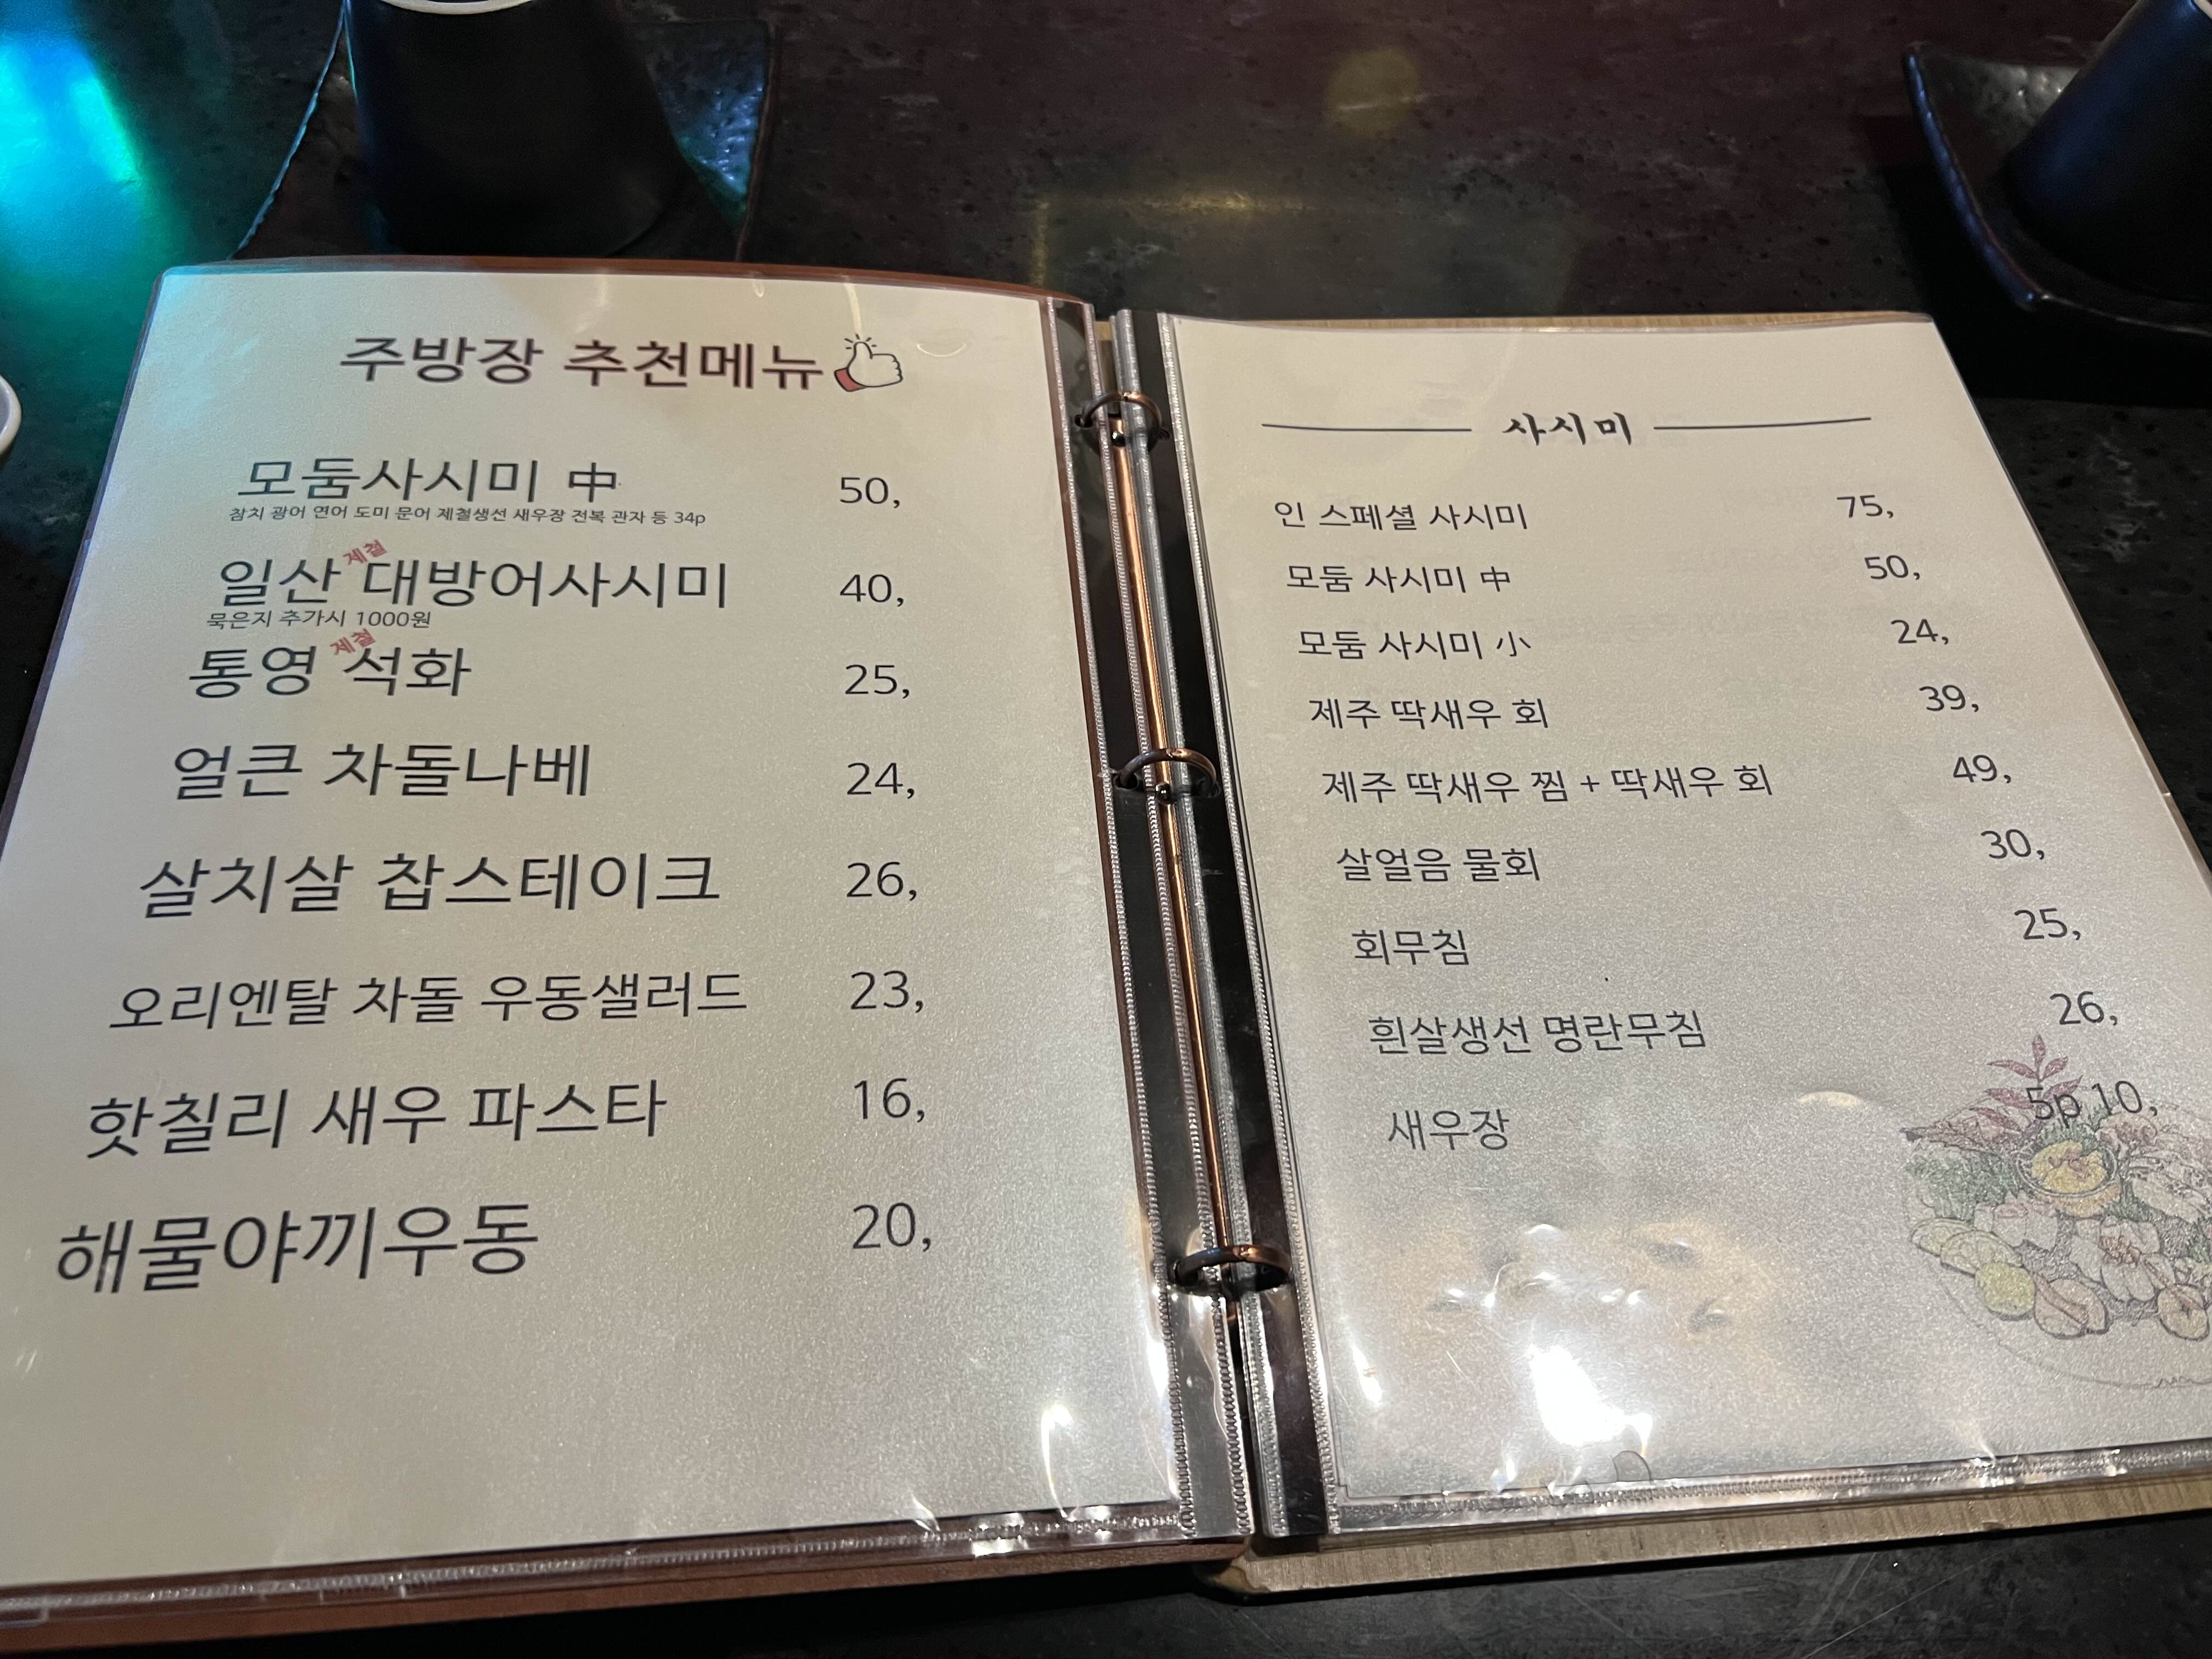 주방장 추천메뉴
모둠사시미 中 50,
참치 광어 연어 도미 문어 제철생선 새우장 전복 관자 등 34p
제철
일산 대방어사시미 40,
묵은지 추가시 1000원
제철
통영 석화 25,
얼큰 차돌나베 24,
살치살 찹스테이크 26,
오리엔탈 차돌 우동샐러드 23,
핫칠리 새우 파스타 16,
해물야끼우동 20,
사시미
인 스페셜 사시미 75,
모둠 사시미 中 50,
모둠 사시미 小 24,
제주 딱새우 회 39,
제주 딱새우 찜 + 딱새우 회 49,
살얼음 물회 30,
회무침 25,
흰살생선 명란무침 26,
새우장 5p 10,